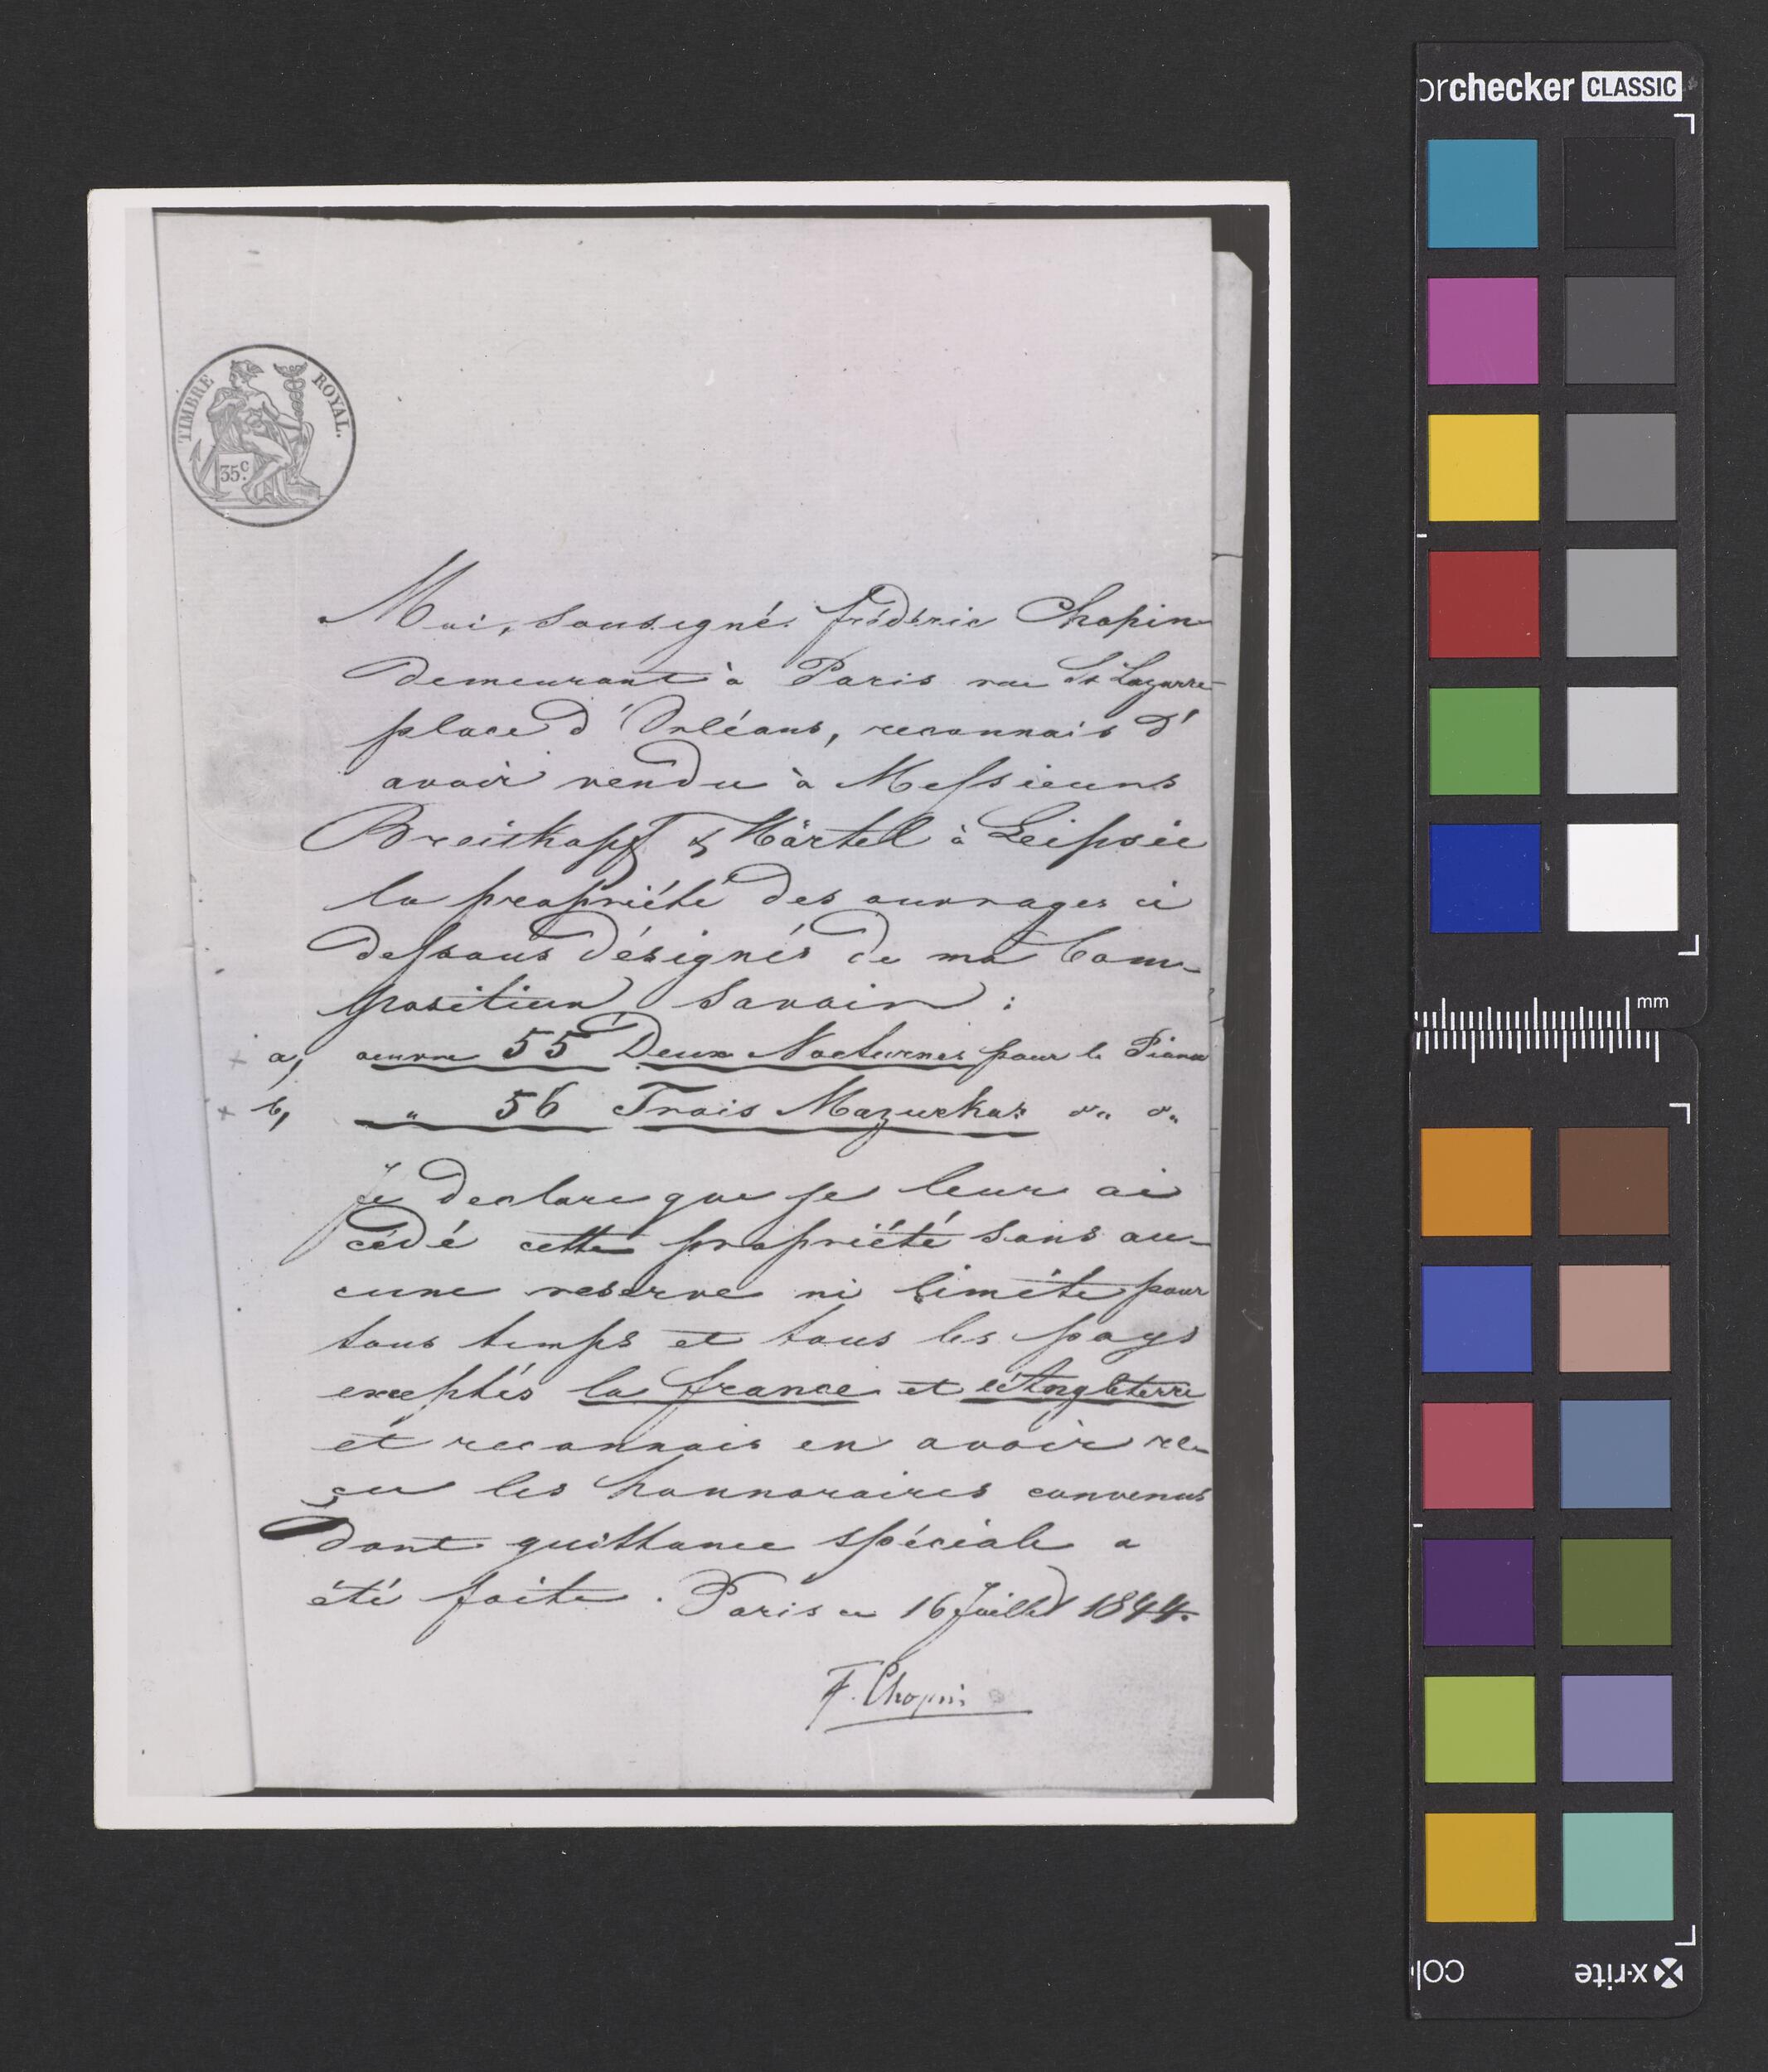 TIMBRE ROYAL.
35c.
Moi, sousigné fréderic Chopin
demeurant à Paris rue St Lazarre
place d'Orléans, reconnais d'
avoir vendu à Messieurs
Breitkopf & Härtel à Leipsic
la propriété des ouvrages ci
dessous désignés de ma Com-
position savoir:
a, oeuvre 55 Deux Nocturnes pour le Piano
b, " 56 Trois Mazurkas do. do.
Je declare que je leur ai
cédé cette propriété sans au-
cune reserve ni limite pour
tous temps et tous les pays
exceptés la france et l'Angleterre
et reconnais en avoir re-
çu les honnoraires convenus
dont quittance spéciale a
été faite. Paris ce 16 Juillet 1844.
F. Chopin
orchecker CLASSIC
mm
x-rite
col